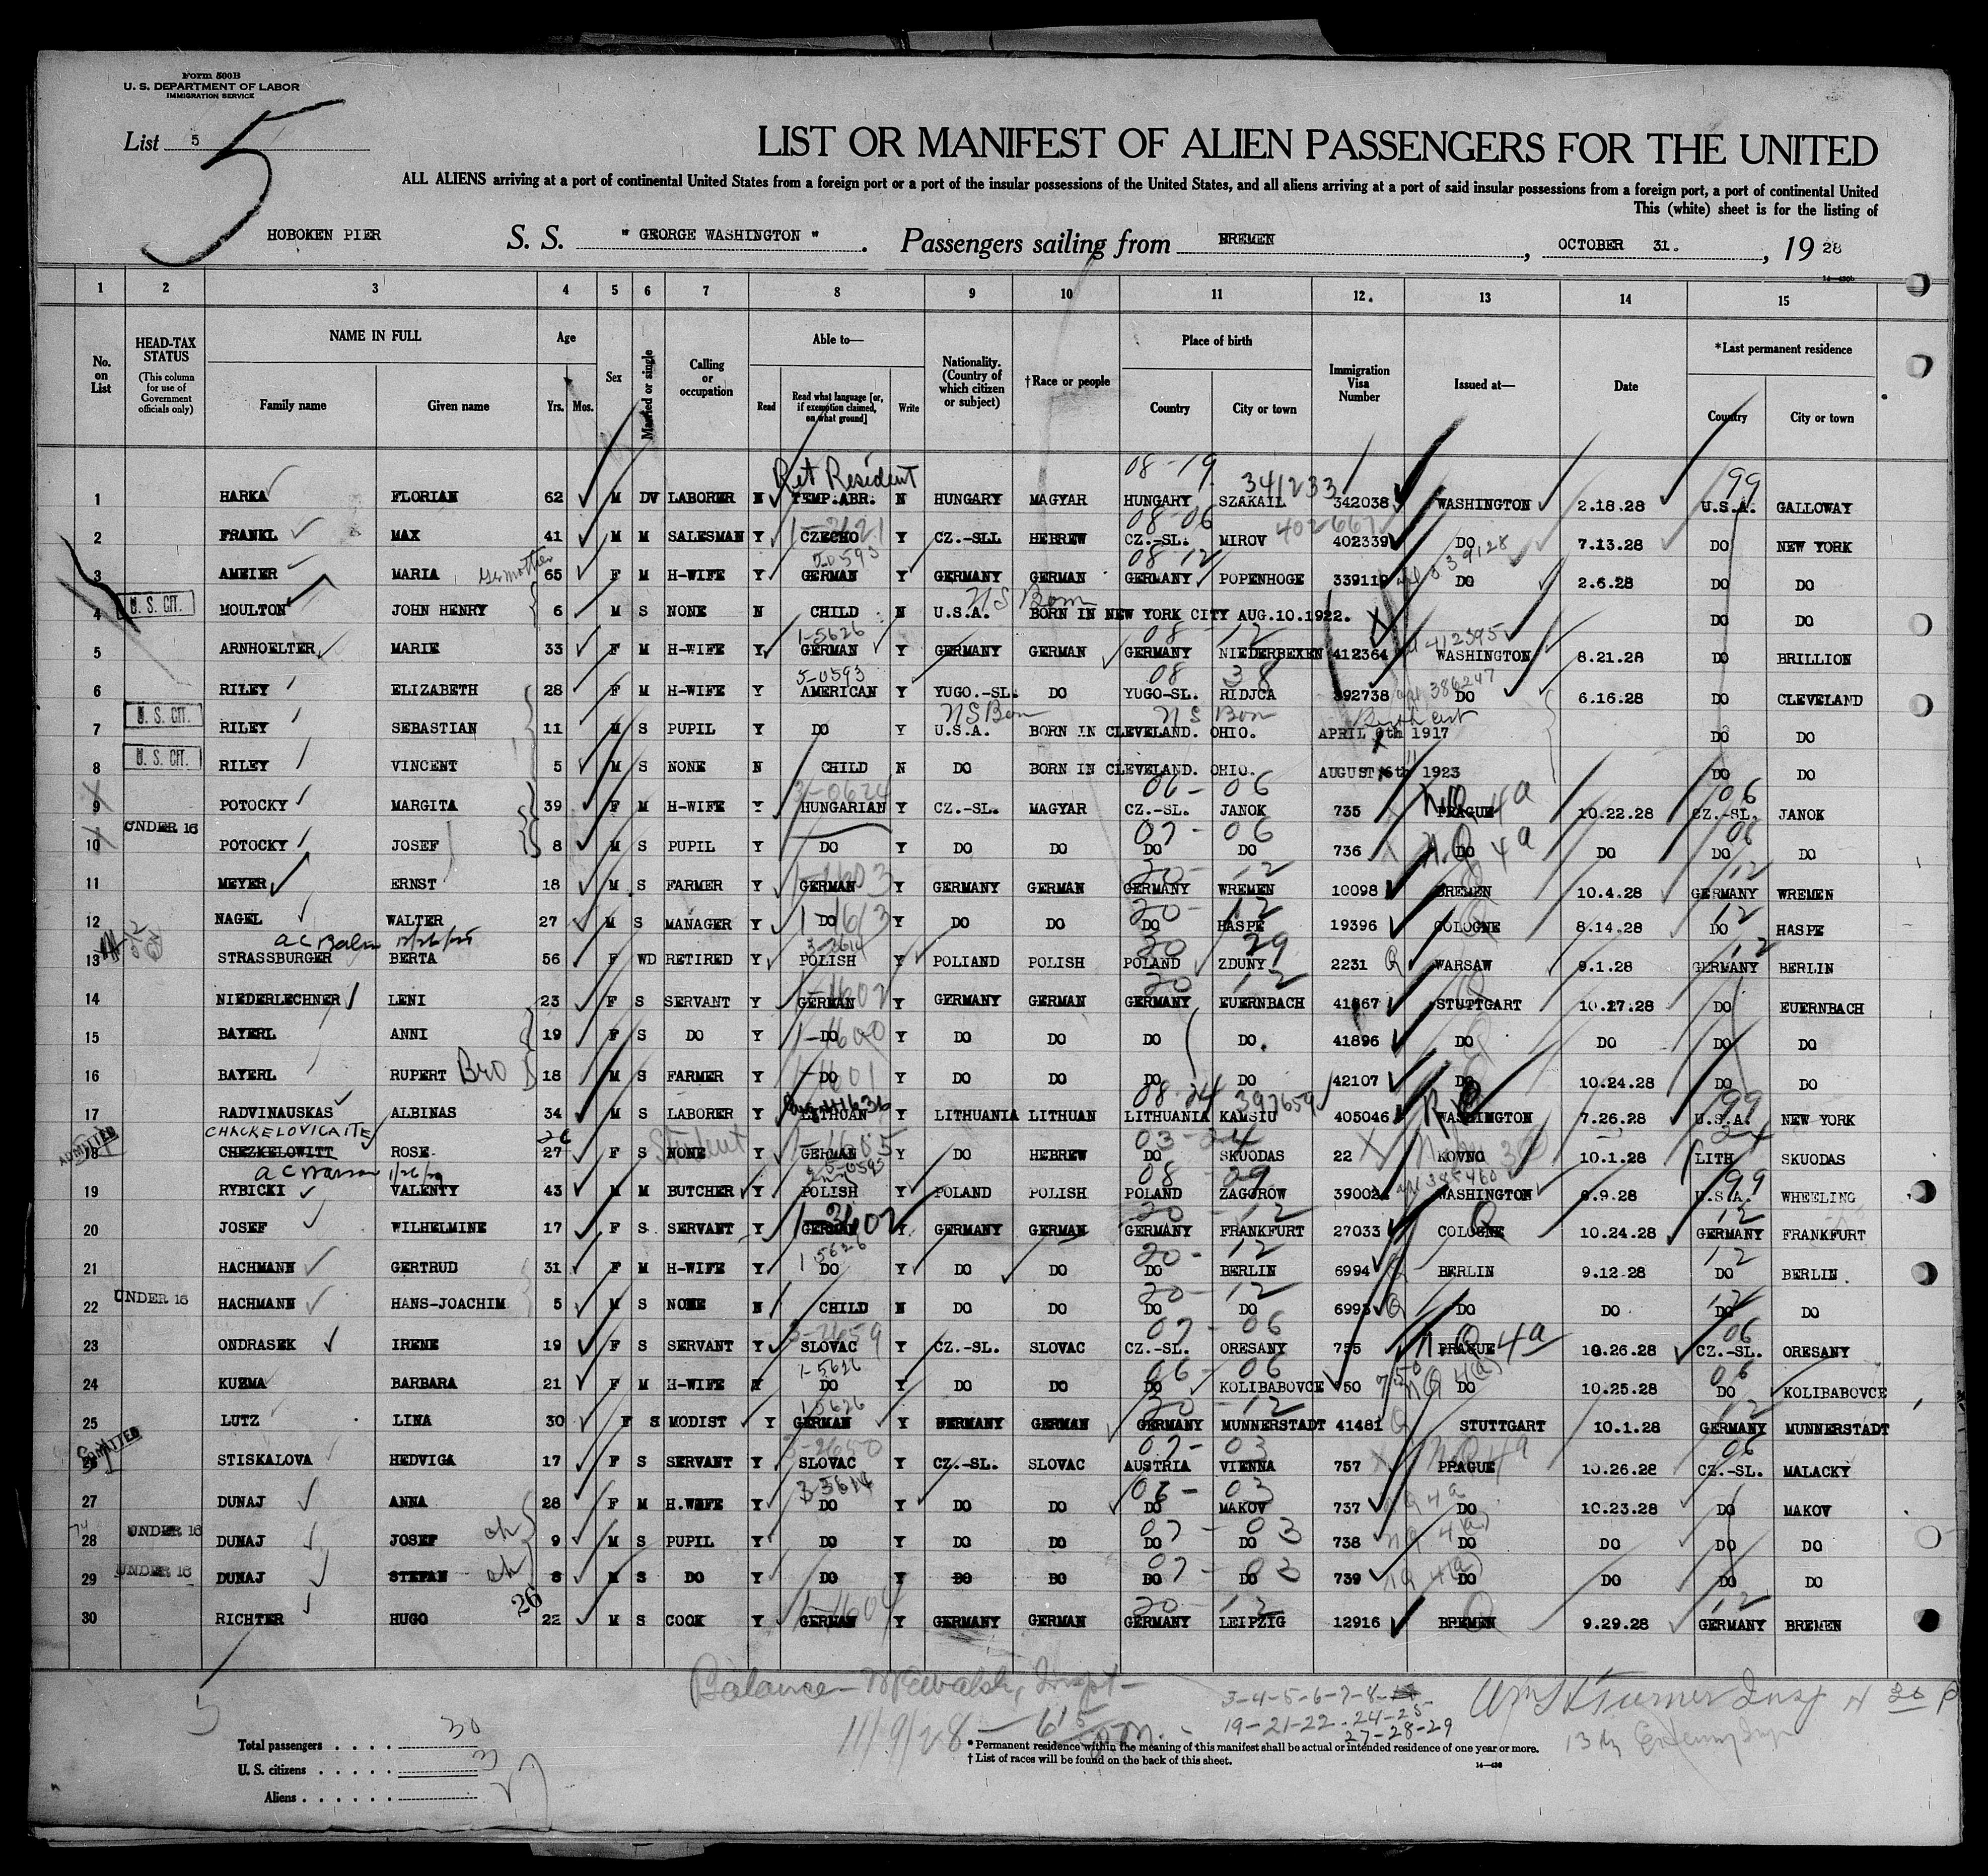 Form 500B
U. S. DEPARTMENT OF LABOR
IMMIGRATION SERVICE
List 5
5
LIST OR MANIFEST OF ALIEN PASSENGERS FOR THE UNITED
ALL ALIENS arriving at a port of continental United States from a foreign port or a port of the insular possessions of the United States, and all aliens arriving at a port of said insular possessions from a foreign port, a port of continental United
This (white) sheet is for the listing of
HOBOKEN PIER S. S. " GEORGE WASHINGTON ". Passengers sailing from BREMEN, OCTOBER 31., 19 28
1 2 3 4 5 6 7 8 9 10 11 12. 13 14 15
No. on List
HEAD-TAX STATUS (This column for use of Government officials only)
NAME IN FULL Family name Given name
Age Yrs. Mos.
Sex
Married or single
Calling or occupation
Able to— Read Read what language [or, if exemption claimed, on what ground] Write
Nationality. (Country of which citizen or subject)
†Race or people
Place of birth Country City or town
Immigration Visa Number
Issued at—
Date
*Last permanent residence Country City or town
Ret Resident 08-19 341233 99
1 HARKA FLORIAN 62 M DV LABORER N TEMP.ABR. N HUNGARY MAGYAR HUNGARY SZAKAIL 342038 WASHINGTON 2.18.28 U.S.A. GALLOWAY
1-2621 08-06
2 FRANKL MAX 41 M M SALESMAN Y CZECHO Y CZ.-SLL HEBREW CZ.-SL. MIROV 402339 DO 7.13.28 DO NEW YORK
5-0593 08-12
3 AMEIER MARIA 65 F M H-WIFE Y GERMAN Y GERMANY GERMAN GERMANY POPENHOGE 339119 DO 2.6.28 DO DO
U. S. CIT.
4 MOULTON JOHN HENRY 6 M S NONE N CHILD N U.S.A. BORN IN NEW YORK CITY AUG.10.1922. DO DO
1-5626 08-12 412395
5 ARNHOELTER MARIE 33 F M H-WIFE Y GERMAN Y GERMANY GERMAN GERMANY NIEDERBEXEN 412364 WASHINGTON 8.21.28 DO BRILLION
5-0593 08 38 386247
6 RILEY ELIZABETH 28 F M H-WIFE Y AMERICAN Y YUGO.-SL. DO YUGO-SL. RIDJCA 392738 DO 6.16.28 DO CLEVELAND
U. S. CIT. Birth Cert
7 RILEY SEBASTIAN 11 M S PUPIL Y DO Y U.S.A. BORN IN CLEVELAND. OHIO. APRIL 9th 1917 DO DO
U. S. CIT.
8 RILEY VINCENT 5 M S NONE N CHILD N DO BORN IN CLEVELAND. OHIO. AUGUST 1923 DO DO
3-0624 06-06 06
9 POTOCKY MARGITA 39 F M H-WIFE Y HUNGARIAN Y CZ.-SL. MAGYAR CZ.-SL. JANOK 735 PRAGUE 10.22.28 CZ.-SL. JANOK
UNDER 16 07-06 06
10 POTOCKY JOSEF 8 M S PUPIL Y DO Y DO DO DO DO 736 DO DO DO DO
1-1603 20-12 12
11 MEYER ERNST 18 M S FARMER Y GERMAN Y GERMANY GERMAN GERMANY WREMEN 10098 BREMEN 10.4.28 GERMANY WREMEN
1-1613 20-12 12
12 NAGEL WALTER 27 M S MANAGER Y DO Y DO DO DO HASPE 19396 COLOGNE 8.14.28 DO HASPE
3-2614 20 29 12
13 STRASSBURGER BERTA 56 F WD RETIRED Y POLISH Y POLIAND POLISH POLAND ZDUNY 2231 WARSAW 9.1.28 GERMANY BERLIN
1-1602 20 12
14 NIEDERLECHNER LENI 23 F S SERVANT Y GERMAN Y GERMANY GERMAN GERMANY EUERNBACH 41867 STUTTGART 10.17.28 DO EUERNBACH
1-1600
15 BAYERL ANNI 19 F S DO Y DO Y DO DO DO DO. 41896 DO DO DO DO
16 BAYERL RUPERT Bro 18 M S FARMER Y DO Y DO DO DO DO 42107 DO 10.24.28 DO DO
08-24 397659 99
17 RADVINAUSKAS ALBINAS 34 M S LABORER Y LITHUAN Y LITHUANIA LITHUAN LITHUANIA KAMSIU 405046 WASHINGTON 7.26.28 U.S.A. NEW YORK
CHACKELOVICAITE 26 Student 1-1605 03-24 24
ADMITTED
18 CHEZKELOWITT ROSE 27 F S NONE Y GERMAN Y DO HEBREW DO SKUODAS 22 KOVNO 10.1.28 LITH SKUODAS
08 29 99
19 RYBICKI VALENTY 43 M M BUTCHER Y POLISH Y POLAND POLISH POLAND ZAGOROW 39002 WASHINGTON 8.9.28 U.S.A. WHEELING
20-12 12
20 JOSEF WILHELMINE 17 F S SERVANT Y GERMAN Y GERMANY GERMAN GERMANY FRANKFURT 27033 COLOGNE 10.24.28 GERMANY FRANKFURT
1 5626 20-12 12
21 HACHMANN GERTRUD 31 F M H-WIFE Y DO Y DO DO DO BERLIN 6994 BERLIN 9.12.28 DO BERLIN
UNDER 16 20-12 12
22 HACHMANN HANS-JOACHIM 5 M S NONE N CHILD N DO DO DO DO 6995 DO DO DO DO
3-2659 07-06 06
23 ONDRASEK IRENE 19 F S SERVANT Y SLOVAC Y CZ.-SL. SLOVAC CZ.-SL. ORESANY 755 PRAGUE 10.26.28 CZ.-SL. ORESANY
1-5626 06-06 06
24 KUZMA BARBARA 21 F M H-WIFE Y DO Y DO DO DO KOLIBABOVCE 750 DO 10.25.28 DO KOLIBABOVCE
15626 20-12 12
25 LUTZ LINA 30 F S MODIST Y GERMAN Y GERMANY GERMAN GERMANY MUNNERSTADT 41481 STUTTGART 10.1.28 GERMANY MUNNERSTADT
ADMITTED 3-2650 07-03 06
26 STISKALOVA HEDVIGA 17 F S SERVANT Y SLOVAC Y CZ.-SL. SLOVAC AUSTRIA VIENNA 757 PRAGUE 10.26.28 CZ.-SL. MALACKY
06-03
27 DUNAJ ANNA 28 F M H.WIFE Y DO Y DO DO DO MAKOV 737 DO 10.23.28 DO MAKOV
UNDER 16 07-03
28 DUNAJ JOSEF ch 9 M S PUPIL Y DO Y DO DO DO DO 738 DO DO DO DO
UNDER 16 07-03
29 DUNAJ STEFAN ch 8 M S DO Y DO Y DO DO DO DO 739 DO DO DO DO
26 1-1604 20-12 12
30 RICHTER HUGO 22 M S COOK Y GERMAN Y GERMANY GERMAN GERMANY LEIPZIG 12916 BREMEN 9.29.28 GERMANY BREMEN
3-4-5-6-7-8
19-21-22-24-25-
27-28-29
11/9/28
Total passengers . . . . 30
U. S. citizens . . . . . 3
Aliens . . . . . . 27
* Permanent residence within the meaning of this manifest shall be actual or intended residence of one year or more.
† List of races will be found on the back of this sheet.